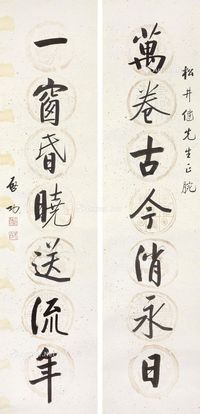 萬卷古今消永日
松井儋先生正腕
一窗昏曉送流年
启功